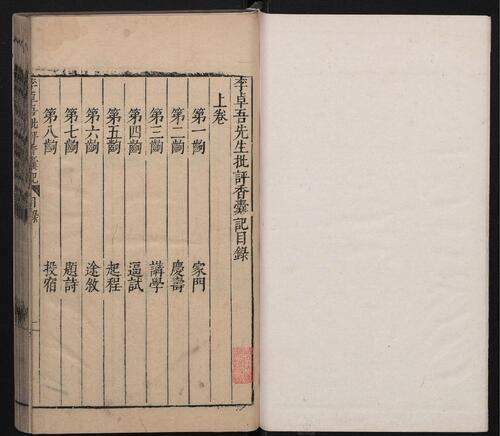 李卓吾先生批評香囊記目錄
上卷
第一齣 家門
第二齣 慶壽
第三齣 講學
第四齣 逼試
第五齣 起程
第六齣 途敘
第七齣 題詩
第八齣 投宿
李卓吾批評香囊記 目錄 一